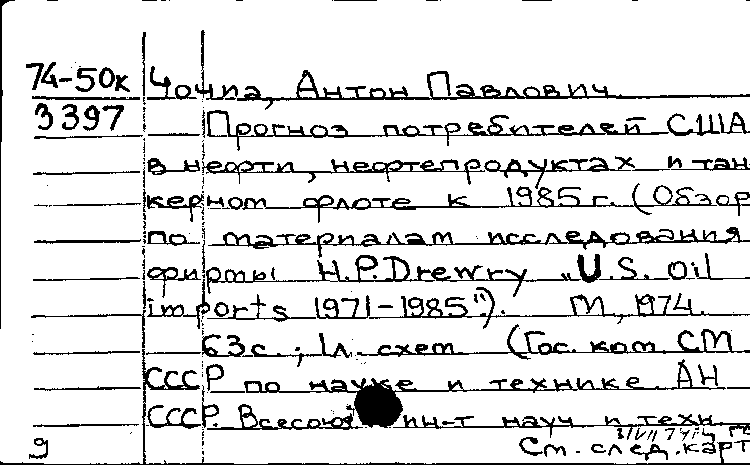 74-50к Чочиа, Антон Павлович.
3397 Прогноз потребителей США
в нефти, нефтепродуктах и тан
керном флоте к 1985 г. (Обзор
по материалам исследования
фирмы H.P. Drewry „U.S. oil
imports 1971-1985"). М., 1974.
63с.; 1л. схем (Гос. ком. СМ
СССР по науке и технике. АН
СССР. Всесоюз ин-т науч и техн.
См. след. карт
9